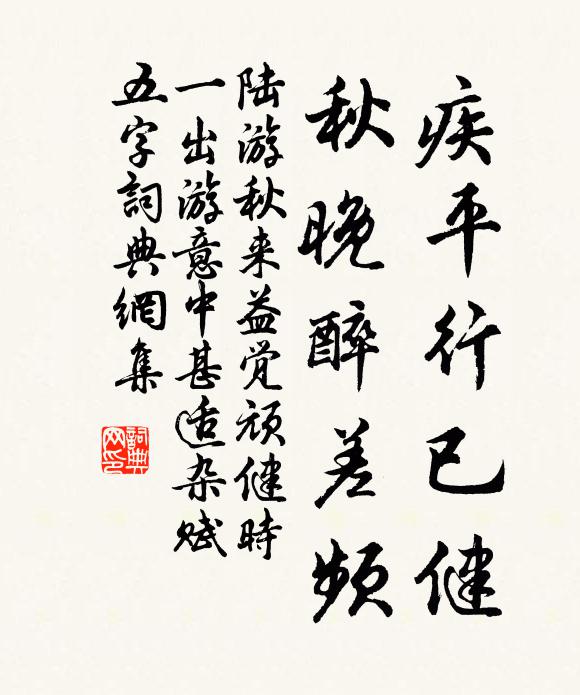 疾平行已健
秋晚醉差频
陆游秋来益觉顽健時
一出游意中甚适杂赋
五字詞典網集
詞典
网印